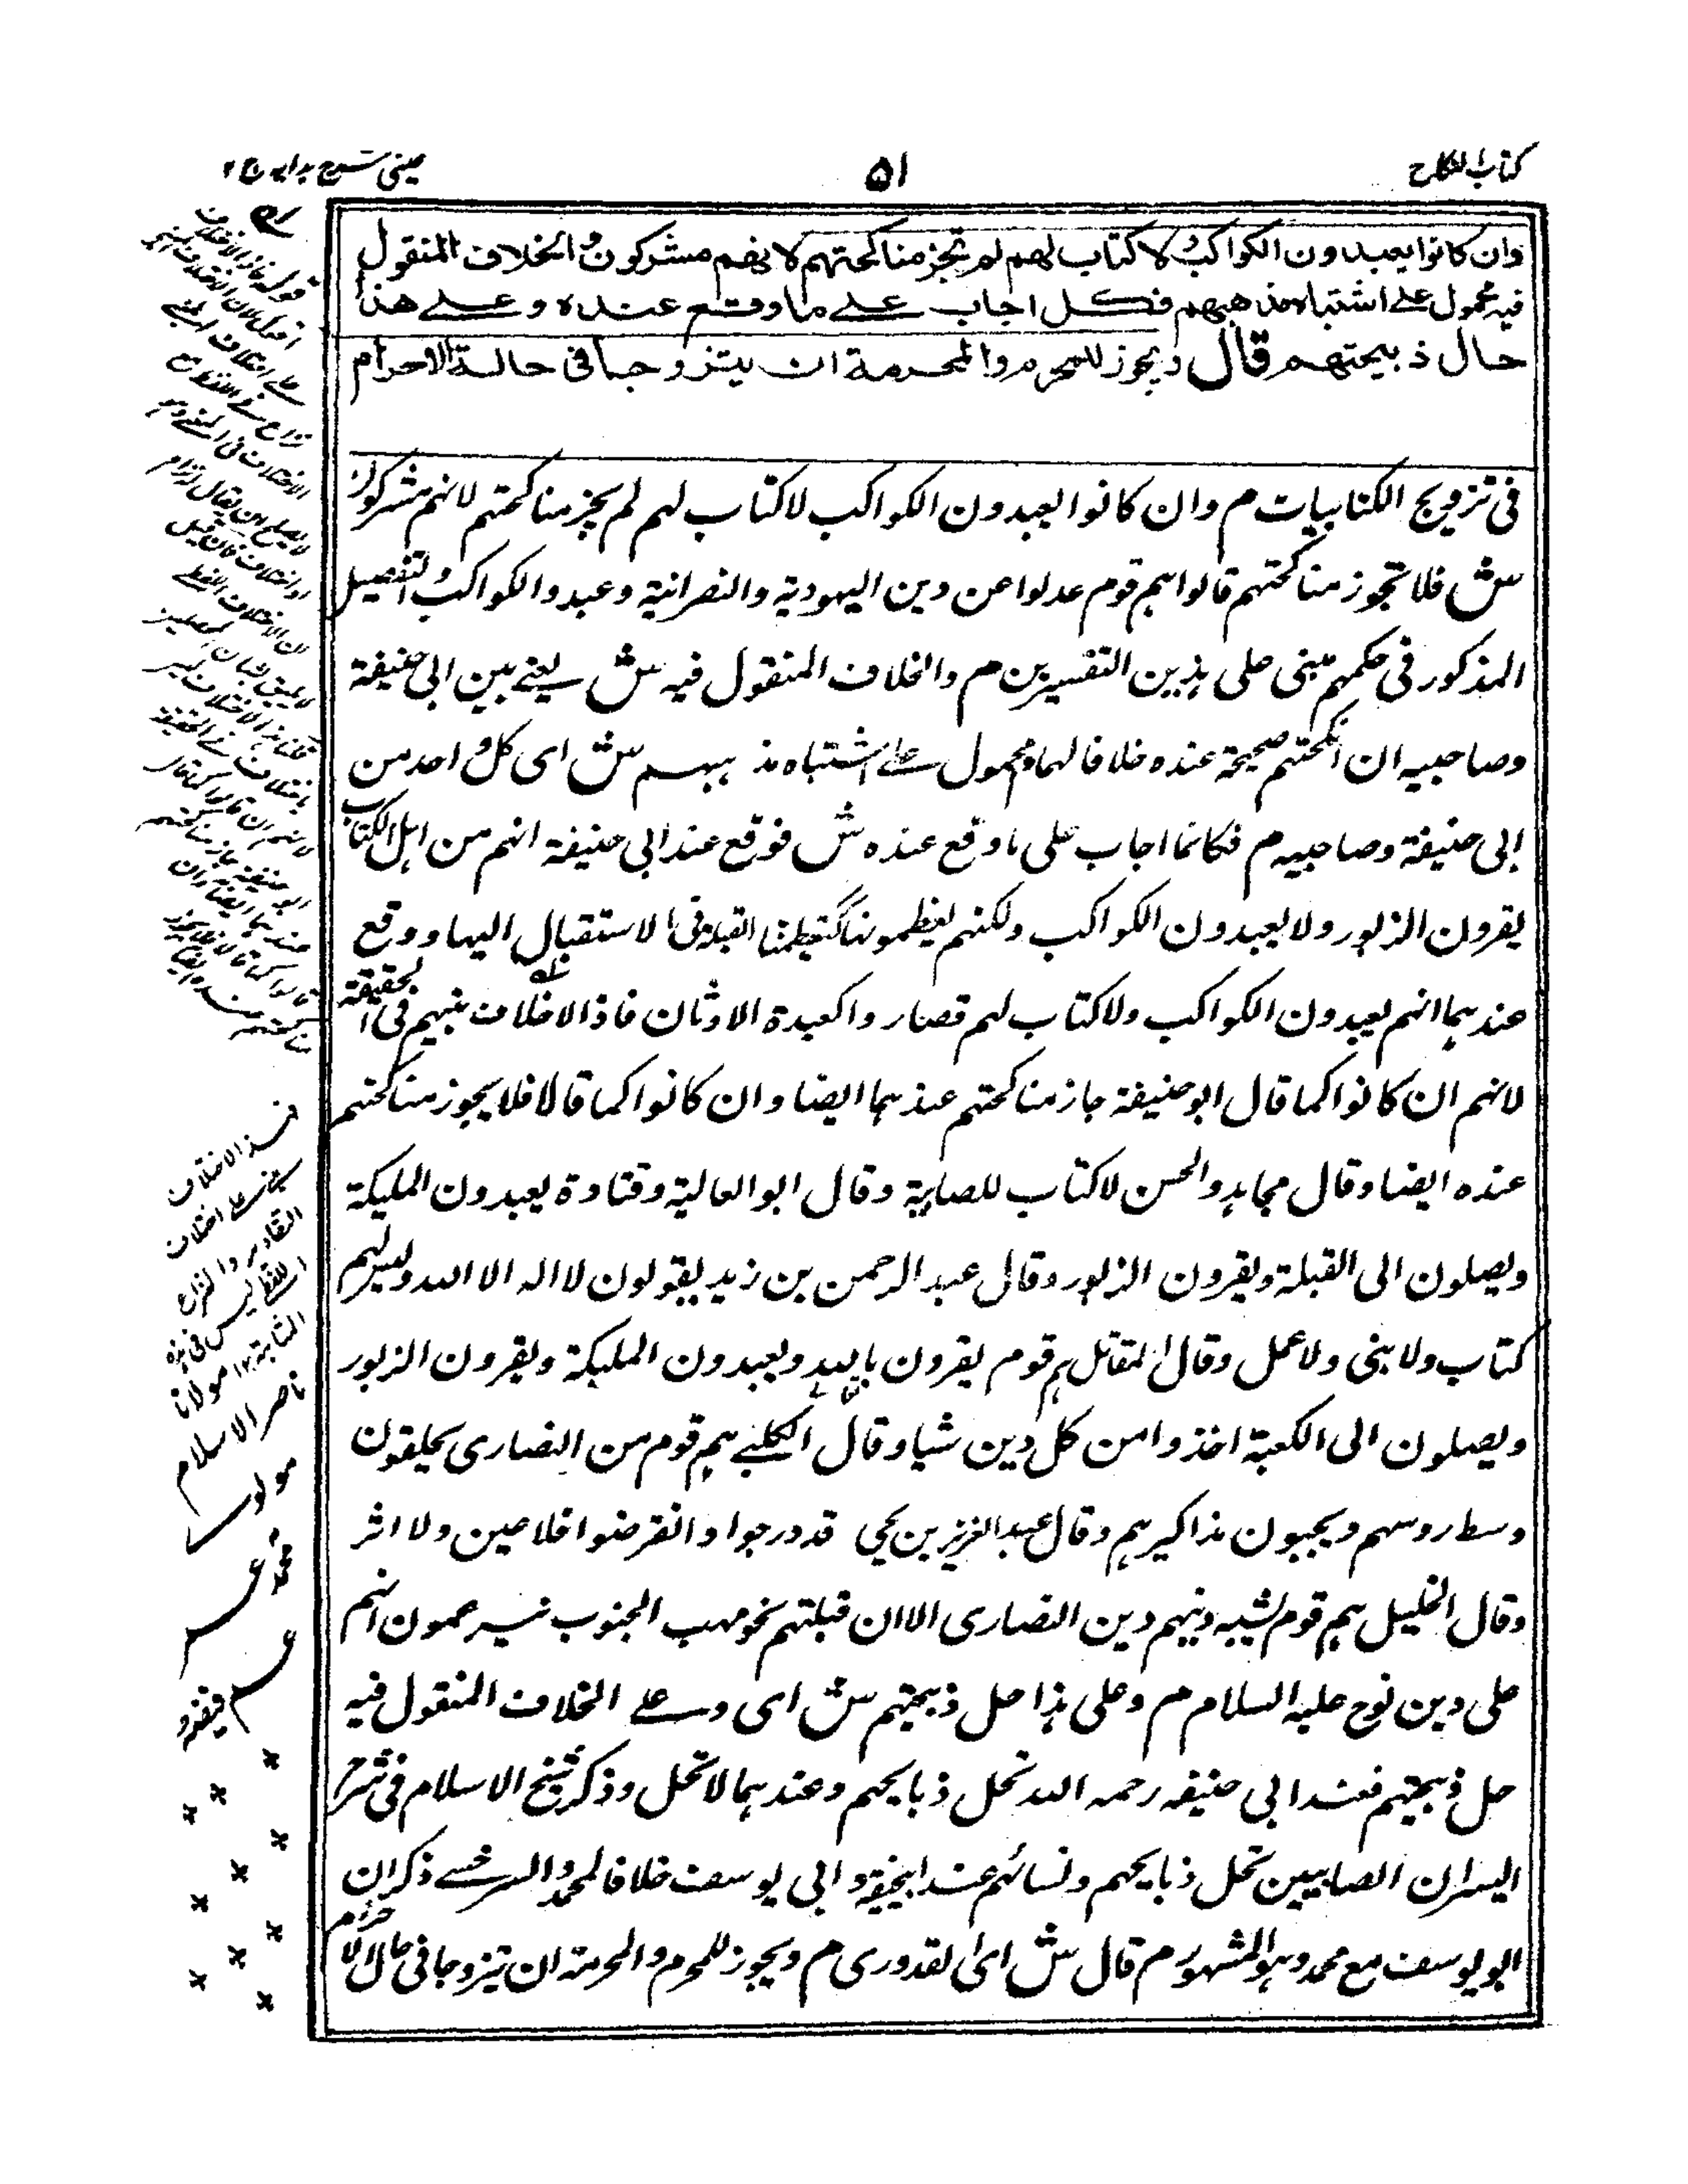 كتاب النكاح
٥١
عينى شرح هدايه ج ٢
وان كانوا يعبدون الكواكب ولا كتاب لهم لم تجز مناكحتهم لانهم مشركون والخلاف المنقول
فيه محمول على اشتباه مذهبهم فكل اجاب على ما وقع عنده وعلى هذا
حال ذبيحتهم قال ويجوز للمحرم والمحرمة ان يتزوجا فى حالة الاحرام
فى تزويج الكتابيات م وان كانوا يعبدون الكواكب لا كتاب لهم لم يجز مناكحتهم لانهم مشركون
ش فلا تجوز مناكحتهم قالوا هم قوم عدلوا عن دين اليهودية والنصرانية وعبدوا الكواكب والتفصيل
المذكور فى حكمهم مبنى على هذين التفسيرين م والخلاف المنقول فيه ش يعنے بين ابى حنيفة
وصاحبيه ان انكحتهم صحيحة عنده خلافا لهما م محمول على اشتباه مذهبهم ش اى كل واحد من
ابى حنيفة وصاحبيه م فكانما اجاب على ما وقع عنده ش فوقع عند ابى حنيفة انهم من اهل الكتاب
يقرون الزبور ولا يعبدون الكواكب ولكنهم يعظمونها كتعظيمنا القبلة فى الاستقبال اليها ووقع
عندهما انهم يعبدون الكواكب ولا كتاب لهم فصاروا كعبدة الاوثان فاذ الاخلاف بينهم فى الحقيقة
لانهم ان كانوا كما قال ابو حنيفة جاز مناكحتهم عندهما ايضا وان كانوا كما قالا فلا يجوز مناكحتهم
عنده ايضا وقال مجاهد والحسن لا كتاب للصابية وقال ابو العالية وقتادة يعبدون المليكة
ويصلون الى القبلة ويقرون الزبور وقال عبد الرحمن بن زيد يقولون لا اله الا الله وليس لهم
كتاب ولا بنى ولا عمل وقال المقاتل هم قوم يقرون بالله ويعبدون المليكة ويقرون الزبور
ويصلون الى الكعبة اخذوا من كل دين شيا وقال الكلبے هم قوم من النصارى يحلقون
وسط روسهم ويجبون مذاكيرهم وقال عبد العزيز بن يحيى قد درجوا وانقرضوا فلا عين ولا اثر
وقال الخليل هم قوم يشبه دينهم دين النصارى الا ان قبلتهم نحو مهب الجنوب يزعمون انهم
على دين نوح عليه السلام م وعلى هذا حل ذبيحتهم ش اى وعلى الخلاف المنقول فيه
حل ذبيحتهم فعند ابى حنيفه رحمه الله تحل ذبايحهم وعندهما لا تحل وذكر شيخ الاسلام فى شرح
اليسران الصابيين تحل ذبايحهم ونسائهم عند ابيحنيفة وابى يوسف خلافا لمحمد والسرخسے ذكر ان
ابو يوسف مع محمد وهو المشهور م قال ش اى القدورى م ويجوز للمحرم والمحرمة ان يتزوجا فى حال الاحرام
فهذا الاختلاف
على اختلاف
مولانا
ناصر الاسلام
مولوى
محمد عمر